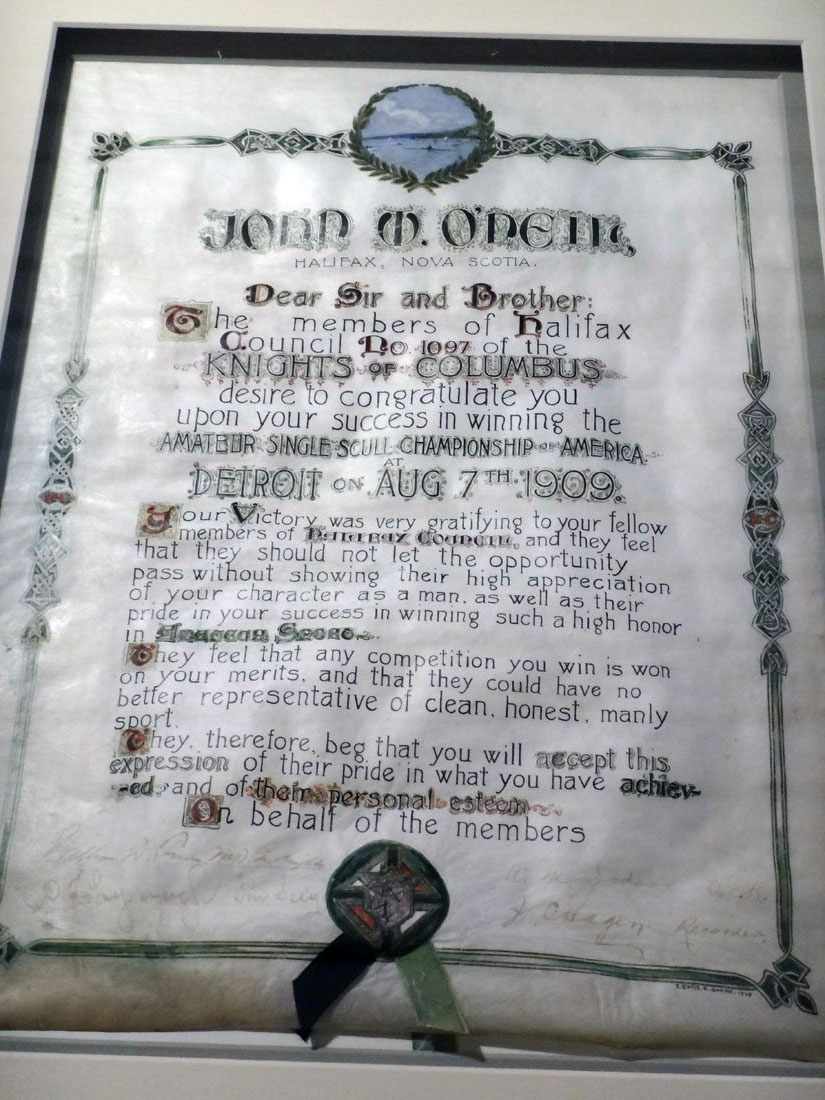 JOHN W. O'NEILL,
HALIFAX, NOVA SCOTIA.
Dear Sir and Brother:
The members of Halifax
Council No. 1097 of the
KNIGHTS OF COLUMBUS
desire to congratulate you
upon your success in winning the
AMATEUR SINGLE SCULL CHAMPIONSHIP OF AMERICA
AT
DETROIT ON AUG 7TH 1909.
Your Victory was very gratifying to your fellow
members of Halifax Council, and they feel
that they should not let the opportunity
pass without showing their high appreciation
of your character as a man, as well as their
pride in your success in winning such a high honor
in Amateur Sport.
They feel that any competition you win is won
on your merits, and that they could have no
better representative of clean, honest, manly
sport.
They, therefore, beg that you will accept this
expression of their pride in what you have achiev-
-ed and of their personal esteem
On behalf of the members
Recorder.